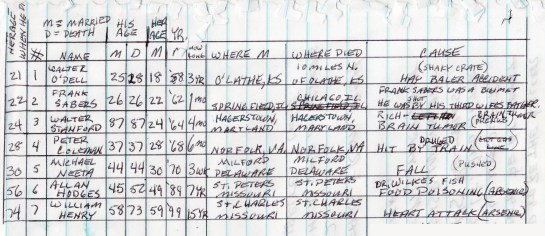 M = MARRIED HIS HER YR.
D = DEATH AGE AGE
HER AGE WHEN HE D. # NAME M D M HOW LONG WHERE M WHERE DIED CAUSE
21 1 WALTER O'DELL 25 28 18 '58 3 YR O'LATHE, KS 10 MILES N. OF OLATHE, KS (SHAKY CRATE) HAY BALER ACCIDENT
22 2 FRANK SABERS 26 26 22 '62 1 mo SPRINGFIELD, IL CHICAGO, IL FRANK SABERS WAS A BIGAMIST HE WAS SHOT BY HIS THIRD WIFE'S FATHER.
24 3 WALTER STANFORD 87 87 24 '64 4 mo HAGERSTOWN, MARYLAND HAGERSTOWN, MARYLAND RICH - BRAIN TUMOR
28 4 PETER COLEMAN 37 37 28 '68 6 mo NORFOLK, VA. NORFOLK, VA DRUGED HIT BY TRAIN
30 5 MICHAEL NEETA 44 44 30 '70 3 WK MILFORD DELAWARE MILFORD DELAWARE FALL (PUSHED)
56 6 ALLAN HODGES 45 52 49 '89 7 YR ST. PETERS MISSOURI ST. PETERS MISSOURI DR. WILKES FISH FOOD POISONING (ARSENIC)
74 7 WILLIAM HENRY 58 73 59 '99 15 YR ST. CHARLES MISSOURI ST. CHARLES MISSOURI HEART ATTACK (ARSENIC)